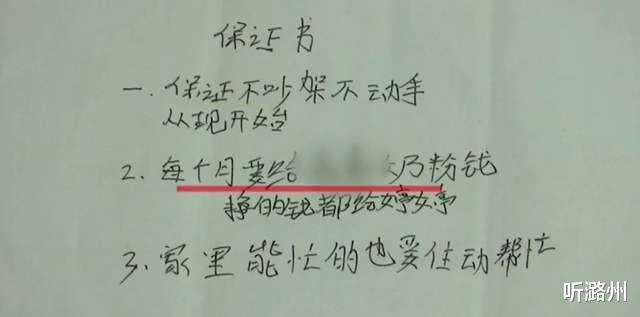 保证书
一.保证不吵架不动手
从现开始
2.每个月要给 奶粉钱
挣的钱都给婷婷
3.家里能忙的也要住动帮忙
听潞州